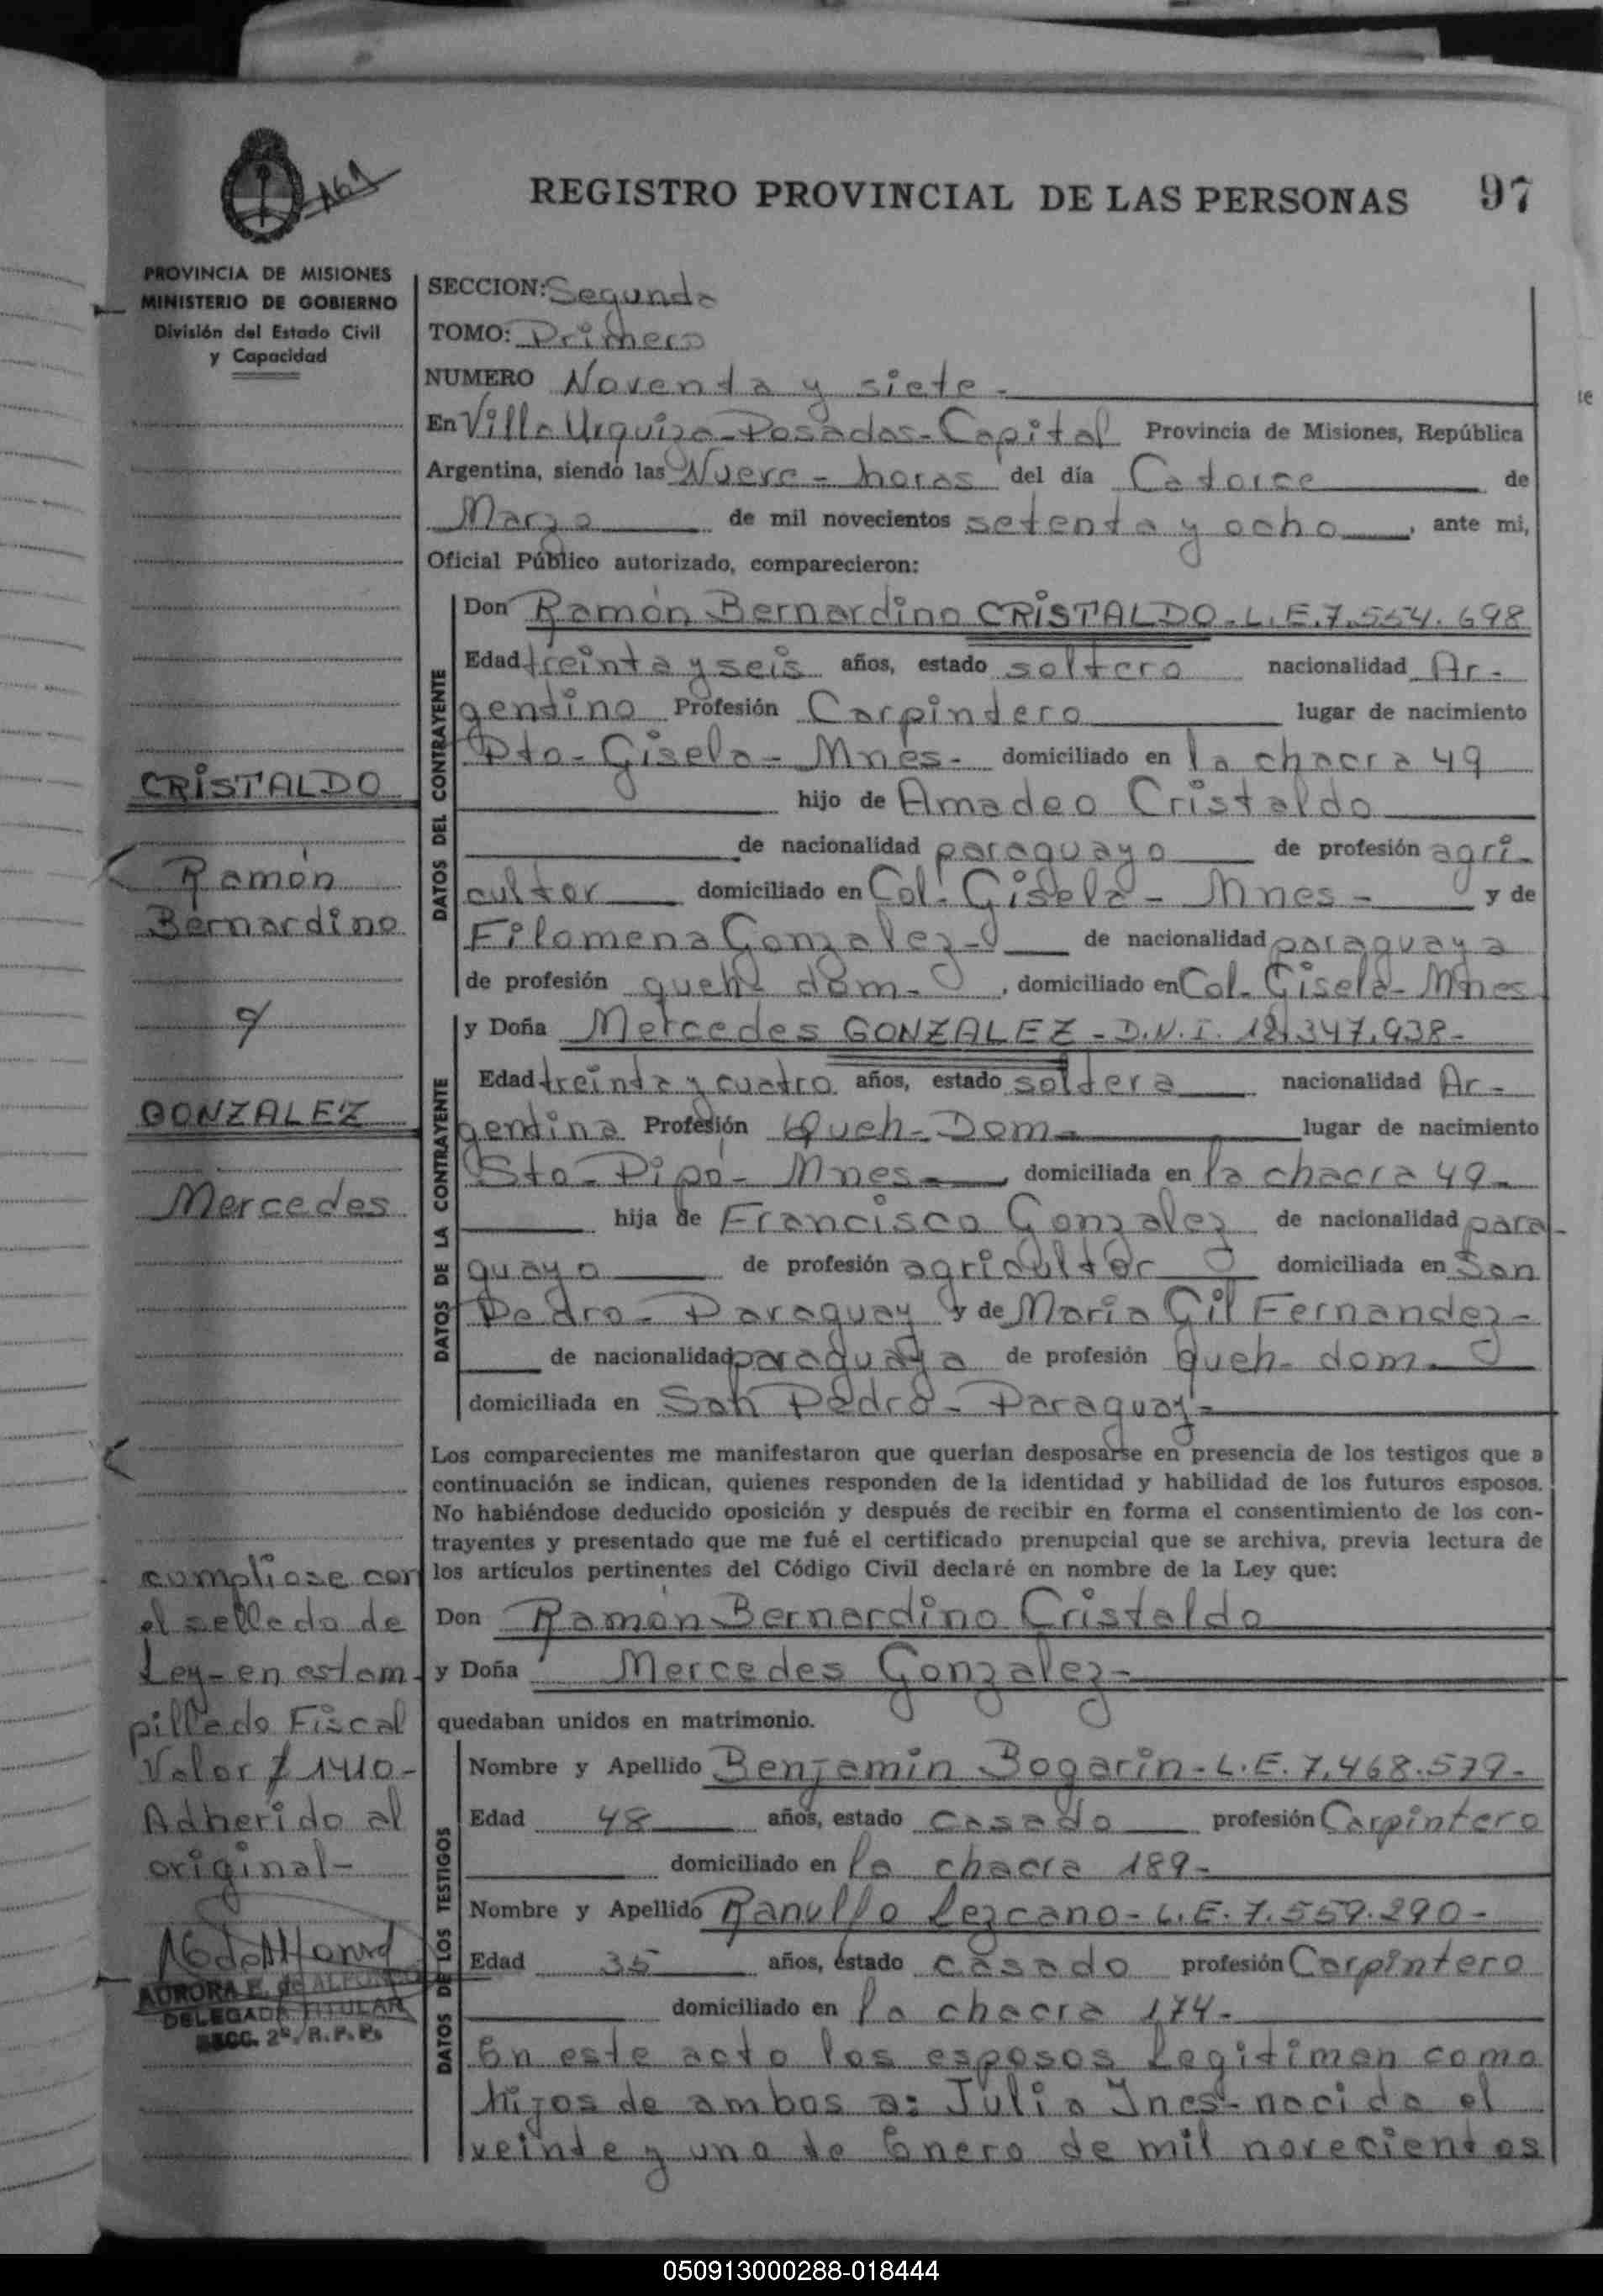 161
REGISTRO PROVINCIAL DE LAS PERSONAS 97
PROVINCIA DE MISIONES
MINISTERIO DE GOBIERNO
División del Estado Civil
y Capacidad
SECCION: Segunda
TOMO: Primero
NUMERO Noventa y siete -
En Villa Urquiza - Posadas - Capital Provincia de Misiones, República
Argentina, siendo las Nueve - horas del día Catorce de
Marzo de mil novecientos setenta y ocho, ante mi,
Oficial Público autorizado, comparecieron:
DATOS DEL CONTRAYENTE
Don Ramón Bernardino CRISTALDO - L.E. 7.554.698
Edad treinta y seis años, estado soltero nacionalidad Ar-
gentino Profesión Carpintero lugar de nacimiento
Pto - Gisela - Mnes - domiciliado en la chacra 49
hijo de Amadeo Cristaldo
de nacionalidad paraguayo de profesión agri-
cultor domiciliado en Col. Gisela - Mnes - y de
Filomena Gonzalez - de nacionalidad paraguaya
de profesión queh - dom -, domiciliado en Col - Gisela - Mnes
CRISTALDO
Ramón
Bernardino
y
GONZALEZ
Mercedes
DATOS DE LA CONTRAYENTE
y Doña Mercedes GONZALEZ - D.N.I. 12.347.938 -
Edad treinta y cuatro años, estado soltera nacionalidad Ar-
gentina Profesión Queh - Dom - lugar de nacimiento
Sto - Pipó - Mnes - domiciliada en la chacra 49 -
hija de Francisco Gonzalez de nacionalidad para-
guayo de profesión agricultor domiciliada en San
Pedro - Paraguay y de Maria Gil Fernandez -
de nacionalidad paraguaya de profesión queh - dom -
domiciliada en San Pedro - Paraguay -
Los comparecientes me manifestaron que querían desposarse en presencia de los testigos que a
continuación se indican, quienes responden de la identidad y habilidad de los futuros esposos.
No habiéndose deducido oposición y después de recibir en forma el consentimiento de los con-
trayentes y presentado que me fué el certificado prenupcial que se archiva, previa lectura de
los artículos pertinentes del Código Civil declaré en nombre de la Ley que:
Don Ramón Bernardino Cristaldo
y Doña Mercedes Gonzalez -
quedaban unidos en matrimonio.
cumpliose con
el sellado de
Ley - en estam-
pillado Fiscal
Valor $ 1410 -
Adherido al
original -
AURORA E. de ALFONSO
DELEGADA TITULAR
SECC. 2ª. R. P. P.
DATOS DE LOS TESTIGOS
Nombre y Apellido Benjamin Bogarin - L.E. 7.468.579 -
Edad 48 años, estado casado profesión Carpintero
domiciliado en la chacra 189 -
Nombre y Apellido Ranulfo Lezcano - L.E. 7.559.290 -
Edad 35 años, estado casado profesión Carpintero
domiciliado en la chacra 174 -
En este acto los esposos legitiman como
hijos de ambos a: Julia Ines - nacida el
veinte y uno de Enero de mil novecientos
050913000288-018444